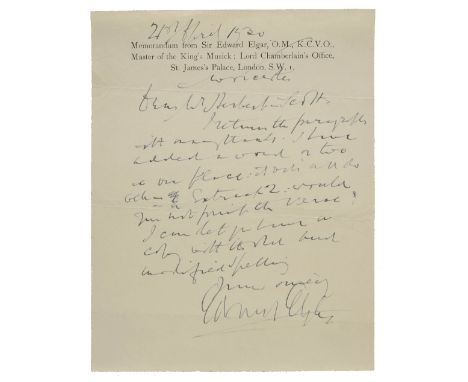 21st April 1930
Memorandum from Sir Edward Elgar, O.M., K.C.V.O.,
Master of the King's Musick; Lord Chamberlain's Office,
St. James's Palace, London, S.W. 1.
Worcester
Dear Mr Herbert Scott
I return the paragraphs
with many thanks. I have
added a word or two
in one place:
Extract 2. would
you not print the verse?
I can let you have a
copy with the old and
modified spelling
Yours sincerely
Edward Elgar